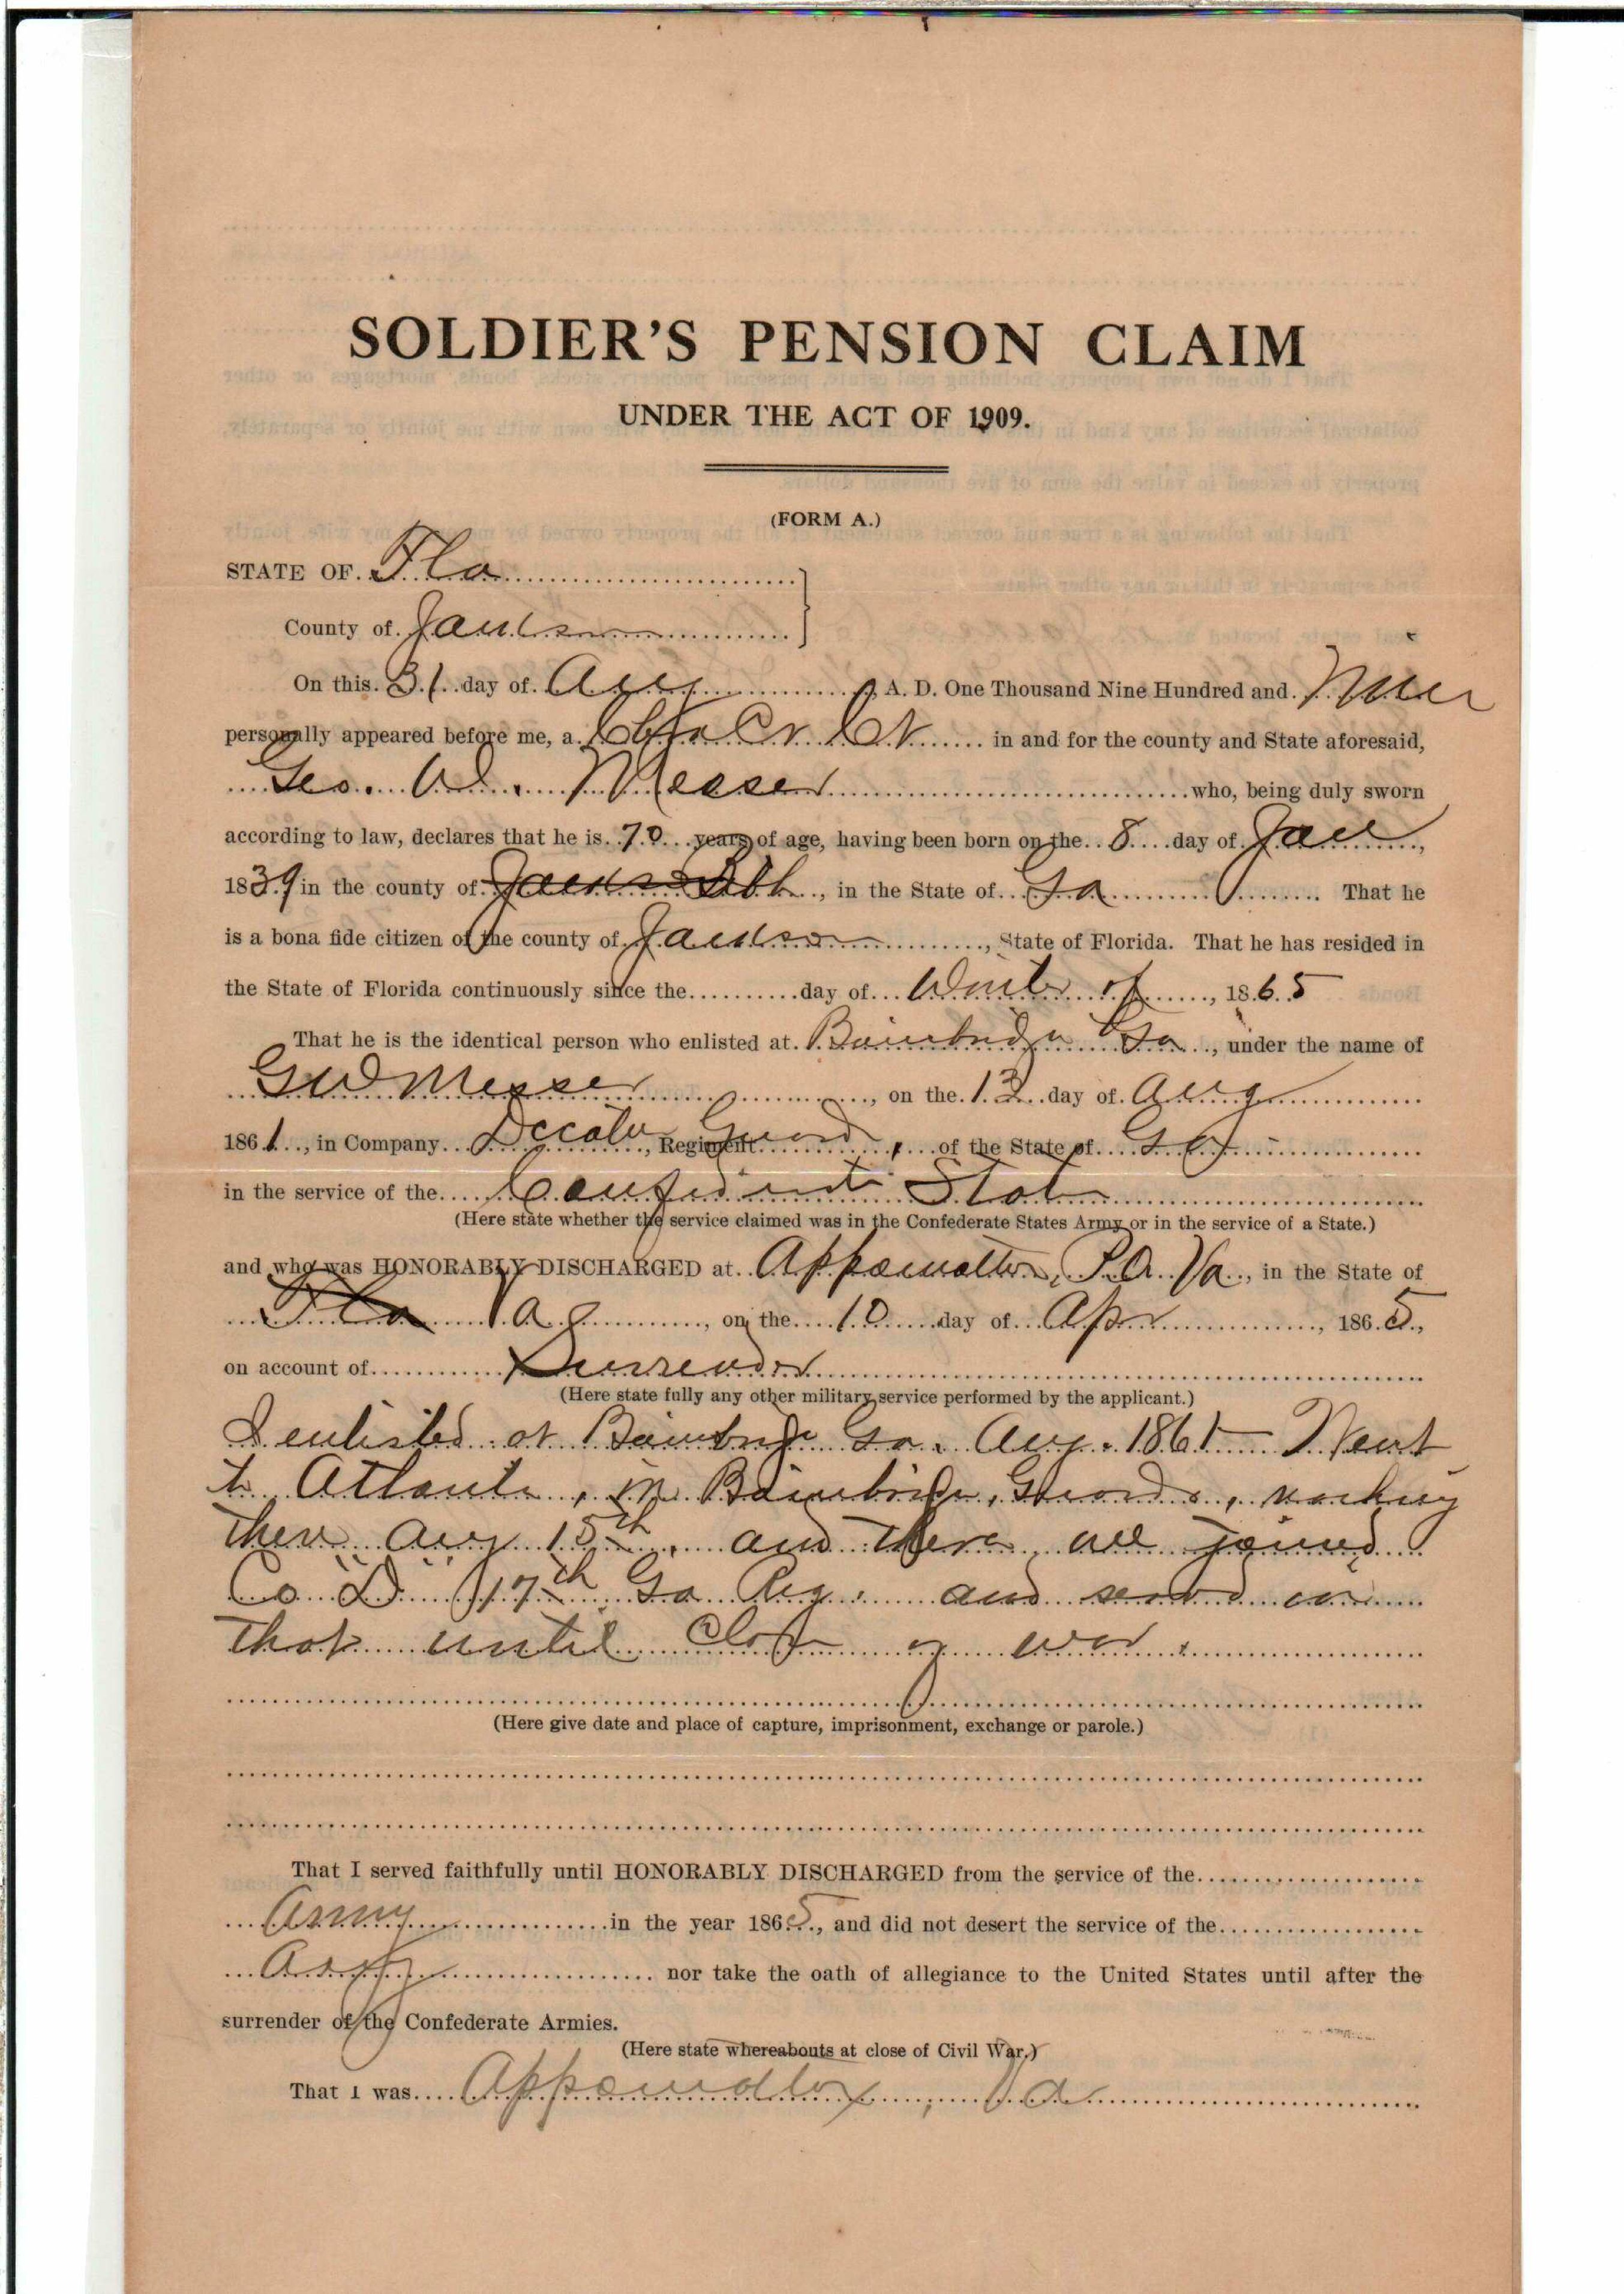 SOLDIER'S PENSION CLAIM
UNDER THE ACT OF 1909.
(FORM A.)
STATE OF Fla
County of Jackson
On this 31 day of Aug, A. D. One Thousand Nine Hundred and Nine
personally appeared before me, a Clk Cir Ct in and for the county and State aforesaid,
Geo. W. Messer who, being duly sworn
according to law, declares that he is 70 years of age, having been born on the 8 day of Jan,
1839 in the county of Jackson Bibb, in the State of Ga That he
is a bona fide citizen of the county of Jackson, State of Florida. That he has resided in
the State of Florida continuously since the day of Winter of, 1865
That he is the identical person who enlisted at Bainbridge Ga, under the name of
GW Messer, on the 13 day of Aug
1861, in Company Decatur Guard, Regiment of the State of Ga
in the service of the Confederate States
(Here state whether the service claimed was in the Confederate States Army or in the service of a State.)
and who was HONORABLY DISCHARGED at Appomattox, Va, in the State of
Fla Va, on the 10 day of Apr, 1865,
on account of Surrender
(Here state fully any other military service performed by the applicant.)
I enlisted at Bainbridge Ga. Aug. 1861 - Went
to Atlanta, in Bainbridge Guards, reaching
there Aug 15th, and there we joined
Co "D" 17th Ga Reg. and served in
that until close of war.
(Here give date and place of capture, imprisonment, exchange or parole.)
That I served faithfully until HONORABLY DISCHARGED from the service of the
Army in the year 1865, and did not desert the service of the
Army nor take the oath of allegiance to the United States until after the
surrender of the Confederate Armies.
(Here state whereabouts at close of Civil War.)
That I was Appomattox, Va